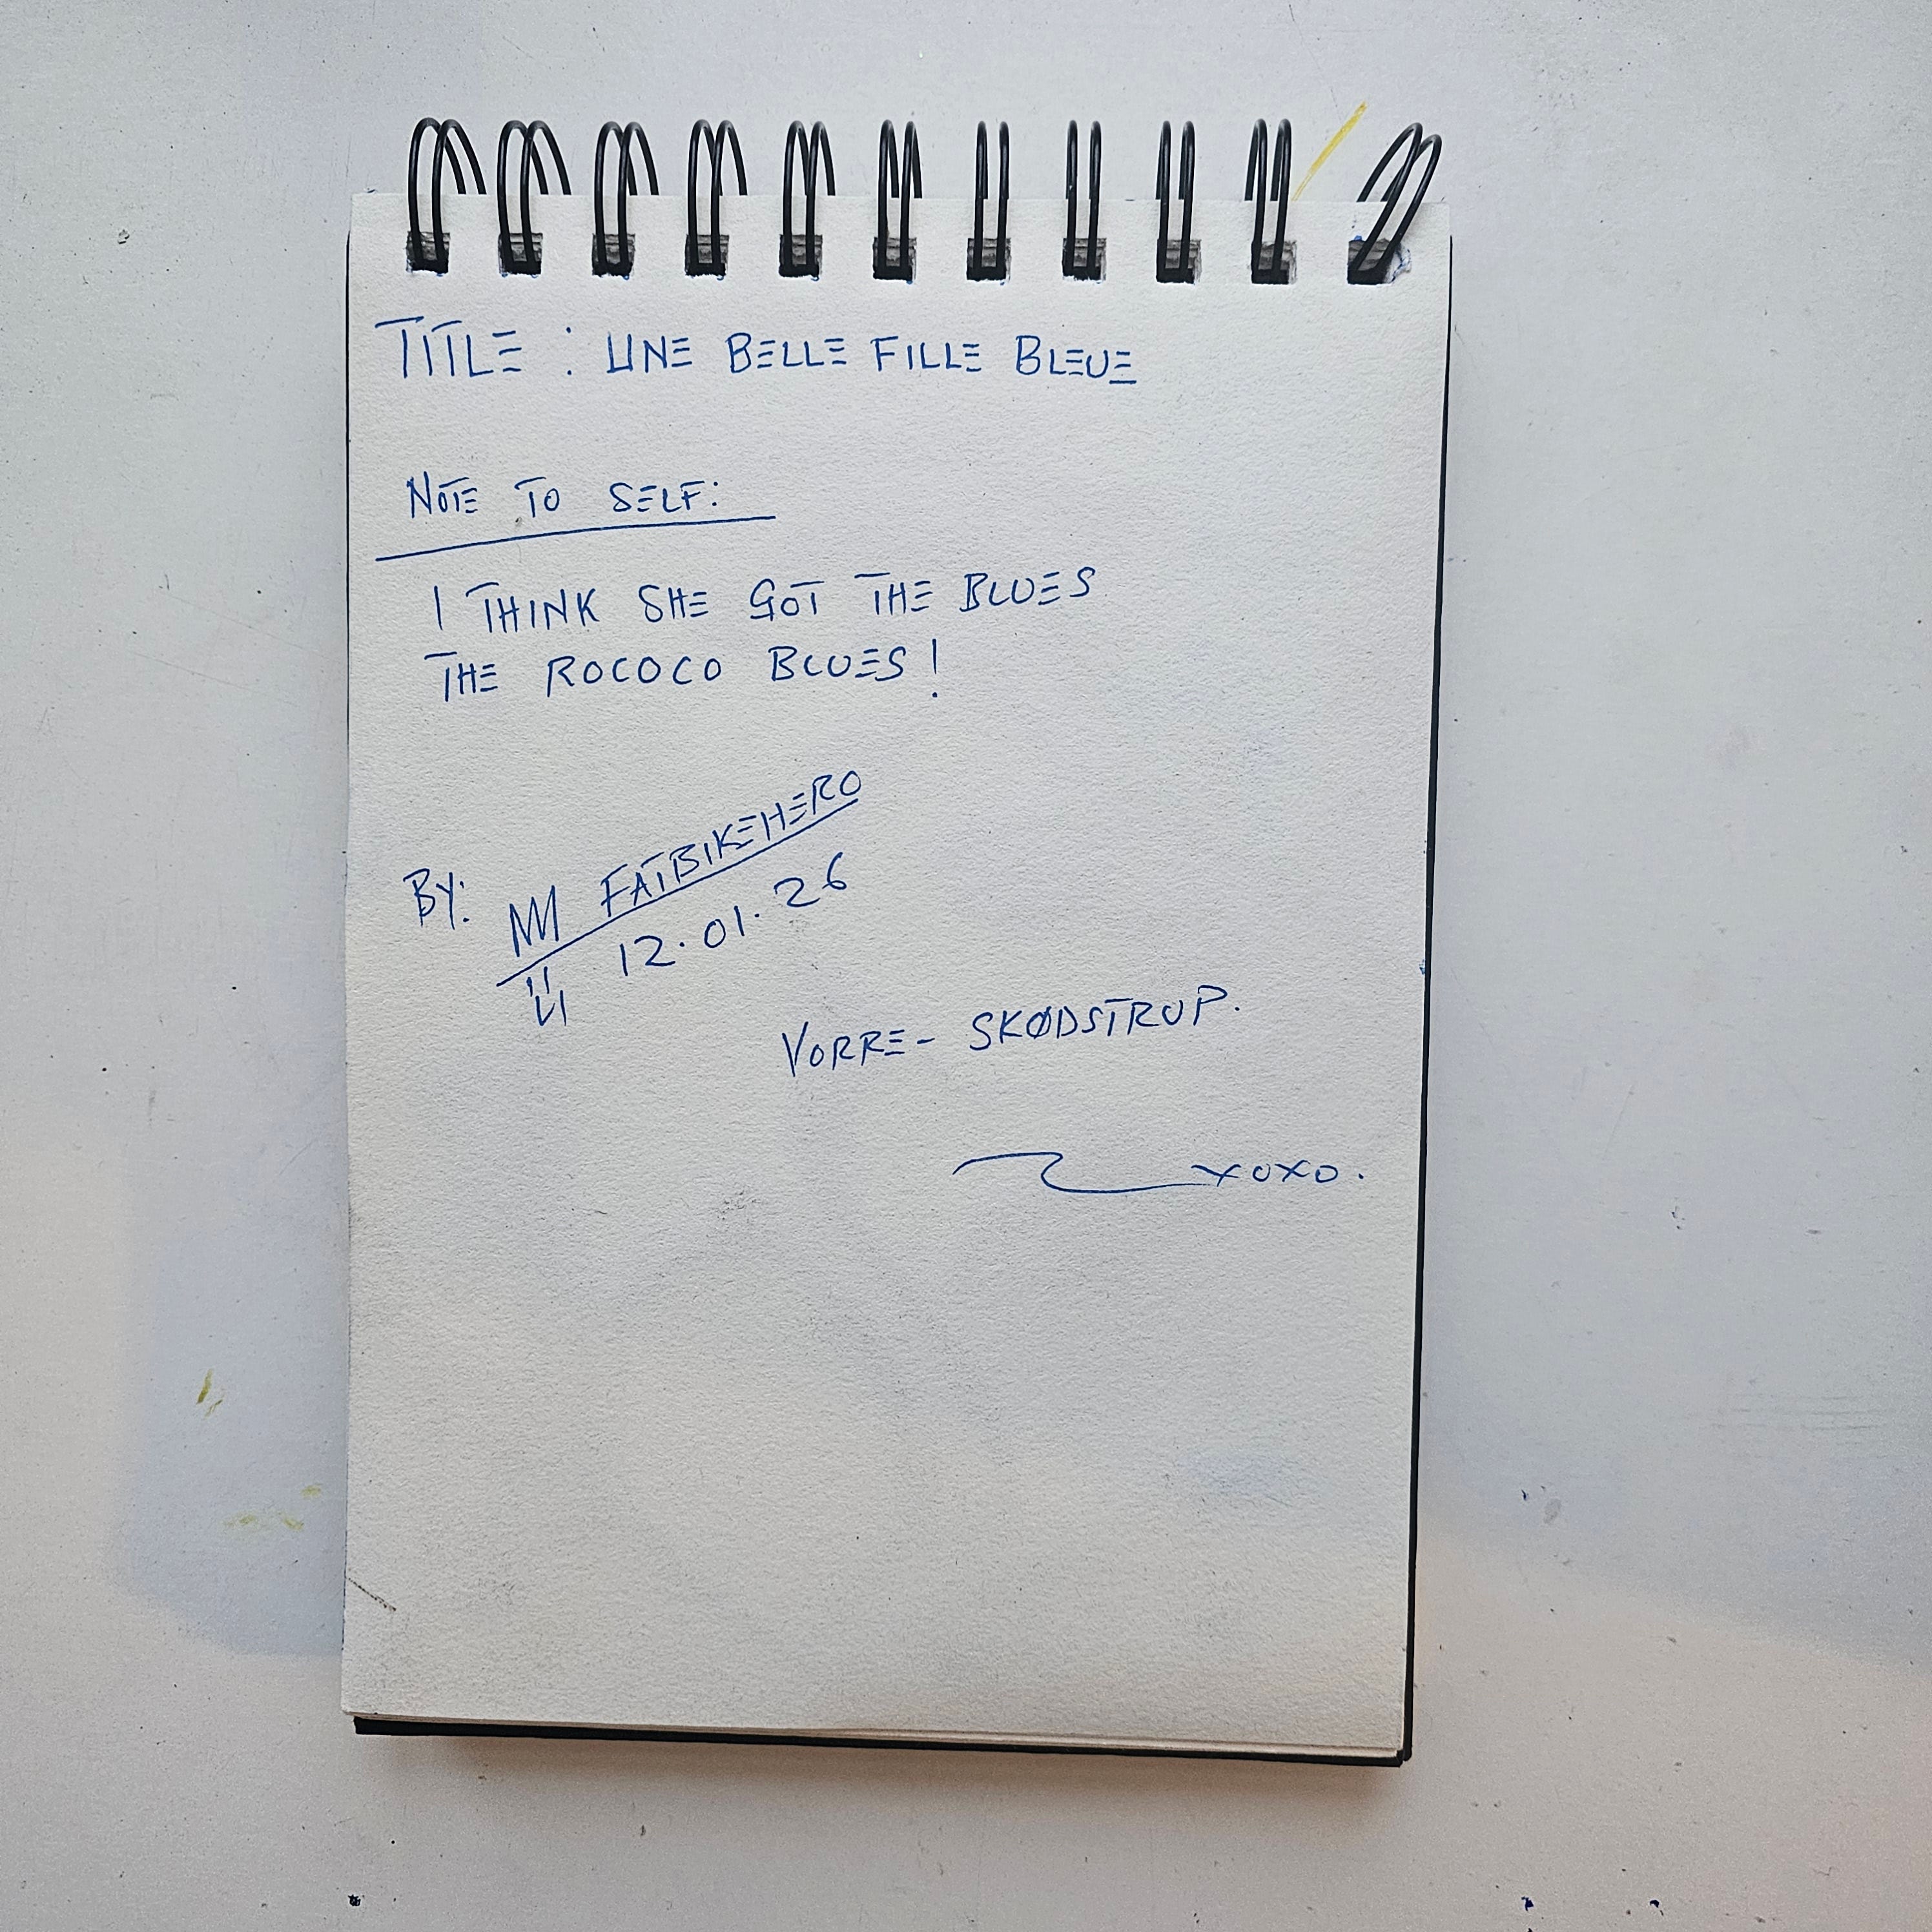 TITLE : UNE BELLE FILLE BLEUE
NOTE TO SELF:
I THINK SHE GOT THE BLUES
THE ROCOCO BLUES!
By: FATBIKEHERO
12.01.26
VORRE - SKØDSTRUP.
xoxo.